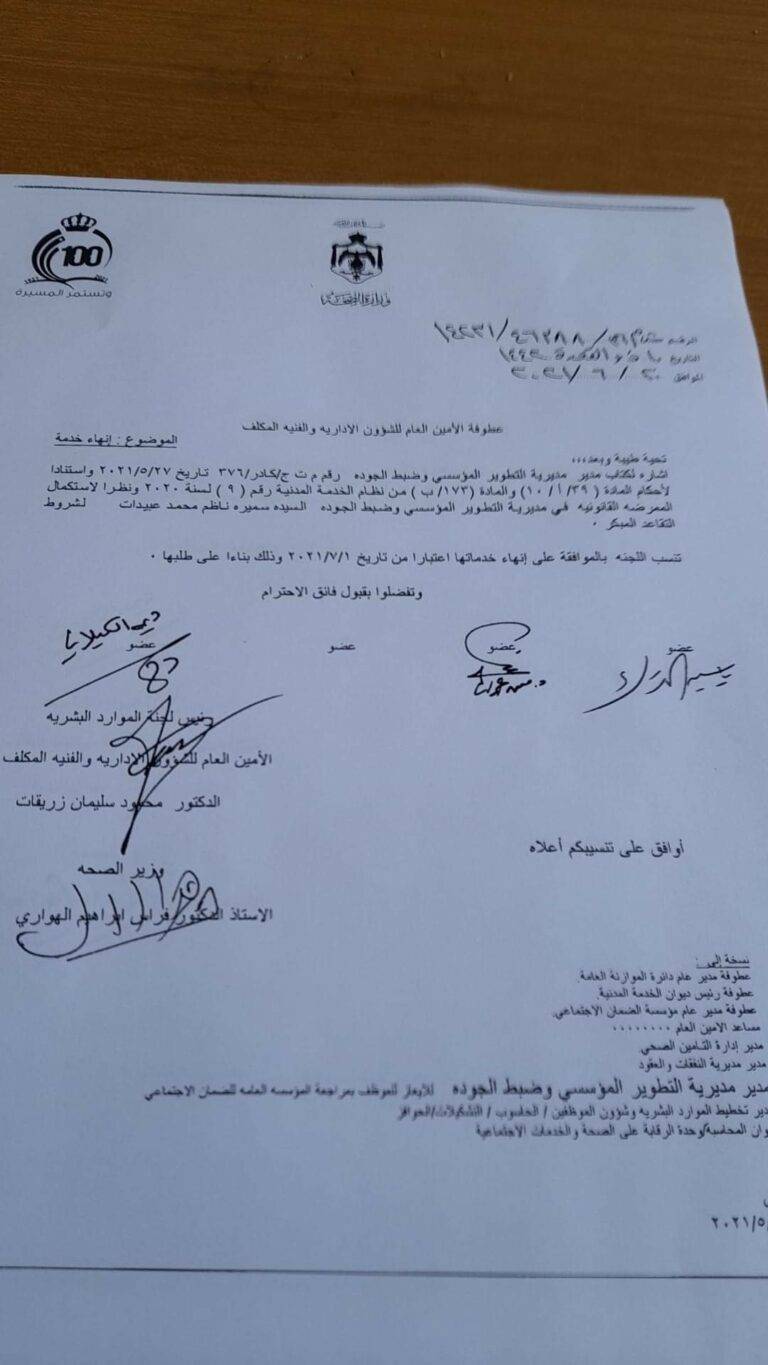 100
وتستمر المسيرة
وزارة الصحة
الرقم
التاريخ
الموافق ٢٠٢١/٦/٢٠
عطوفة الأمين العام للشؤون الاداريه والفنيه المكلف
الموضوع : إنهاء خدمة
تحية طيبة وبعد،،،
اشاره لكتاب مدير مديرية التطوير المؤسسي وضبط الجوده رقم م ت ج/كادر/٣٧٦ تاريخ ٢٠٢١/٥/٢٧ واستنادا
لأحكام المادة ( ٣٩/أ/١٠ ) والمادة (١٧٣/ ب ) من نظام الخدمة المدنية رقم ( ٩ ) لسنة ٢٠٢٠ ونظرا لاستكمال
الممرضه القانونيه في مديرية التطوير المؤسسي وضبط الجوده السيده سميره ناظم محمد عبيدات لشروط
التقاعد المبكر .
تنسب اللجنه بالموافقة على إنهاء خدماتها اعتبارا من تاريخ ٢٠٢١/٧/١ وذلك بناءا على طلبها .
وتفضلوا بقبول فائق الاحترام
عضو عضو عضو عضو
رئيس لجنة الموارد البشريه
الأمين العام للشؤون الاداريه والفنيه المكلف
الدكتور محمود سليمان زريقات
أوافق على تنسيبكم أعلاه
وزير الصحه
الاستاذ الدكتور فراس ابراهيم الهواري
نسخة إلى :
عطوفة مدير عام دائرة الموازنة العامة.
عطوفة رئيس ديوان الخدمة المدنية.
عطوفة مدير عام مؤسسة الضمان الاجتماعي.
مساعد الامين العام ........
مدير إدارة التامين الصحي.
مدير مديرية النفقات والعقود
مدير مديرية التطوير المؤسسي وضبط الجوده للايعاز للموظف بمراجعة المؤسسه العامه للضمان الاجتماعي
دير تخطيط الموارد البشريه وشؤون الموظفين / الحاسوب / التشكيلات/الحوافز
وان المحاسبة/وحدة الرقابة على الصحة والخدمات الاجتماعية
٢٠٢١/٥/